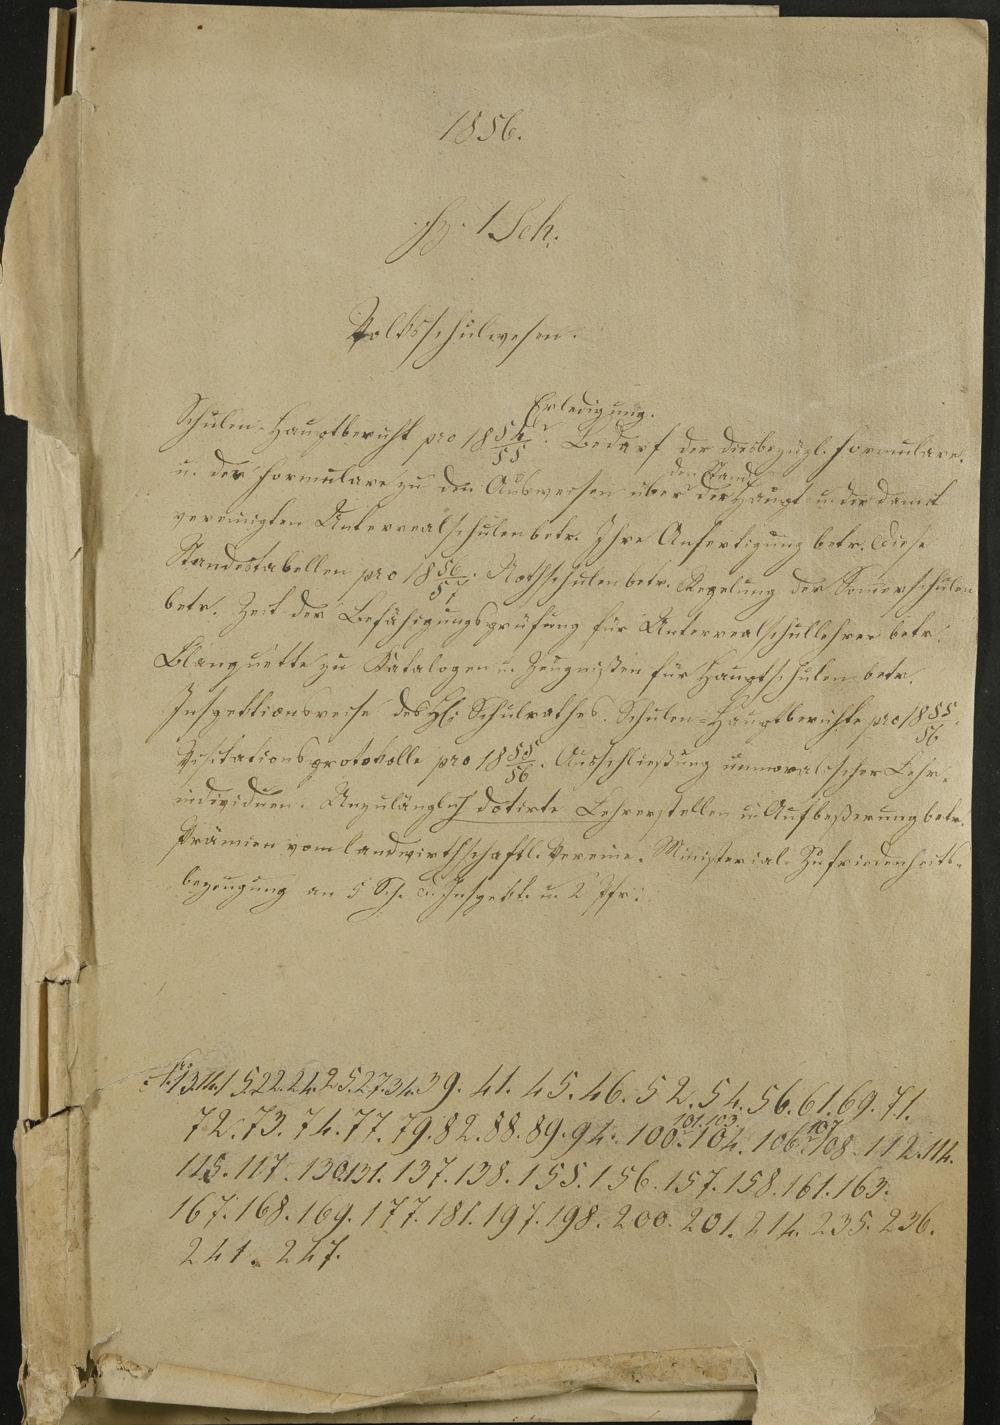 1856.
1 Sch.
Volksschulwesen.
Erledigung.
Schulen-Hauptbericht pro 1854/55. Bedarf der diesbezügl. Formulare.
den Stand
u. der Formulare zu den Ausweisen über der Haupt- u. der damit
vereinigten Unterrealschulen betr. Ihre Anfertigung betr. Diese
Standestabellen pro 1856/57. Nothschulen betr. Regelung der Som̄erschulen
betr. Zeit der Befähigungsprüfung für Unterrealschullehrer betr.
Blanquette zu Katalogen u. Zeugnißen für Hauptschulen betr.
Inspektionsreise des H: Schulrathes. Schulen-Hauptberichte pro 1855/56.
Visitationsprotokolle pro 1855/56. Ausschließung unmoralischer Lehr-
individuen. Unzulänglich dotirte Lehrerstellen u. Aufbeßerung betr.
Prämien vom landwirthschaftl. Vereine. Ministerial-Zufriedenheits-
bezeugung an 5 Sch. Inspekt. u. 2 Pfr:
Nro 13.14.15.22.24.25.27.34.39.41.45.46.52.54.56.61.69.71.
101.103. 107
72.73.74.77.79.82.88.89.94.100.104.106.108.112.114.
115.117.130.131.137.138.155.156.157.158.161.163.
167.168.169.177.181.197.198.200.201.214.235.236.
241.247.